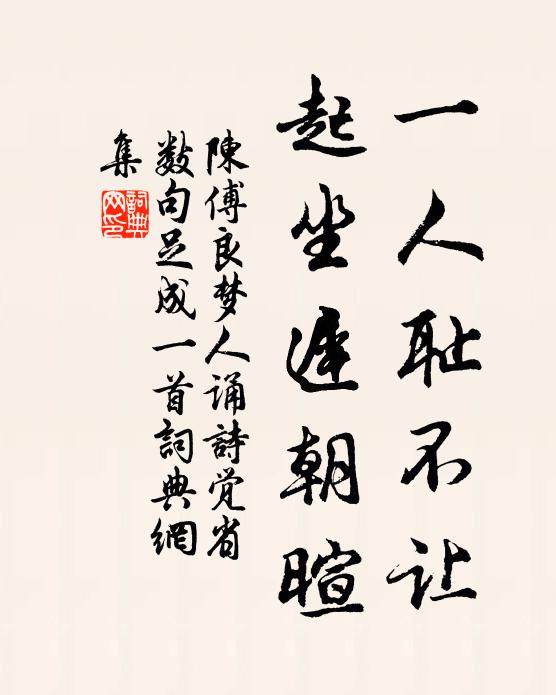 一人耻不让
起坐遲朝暄
陳傅良梦人诵詩觉省
数句足成一首詞典網
集
詞典网印